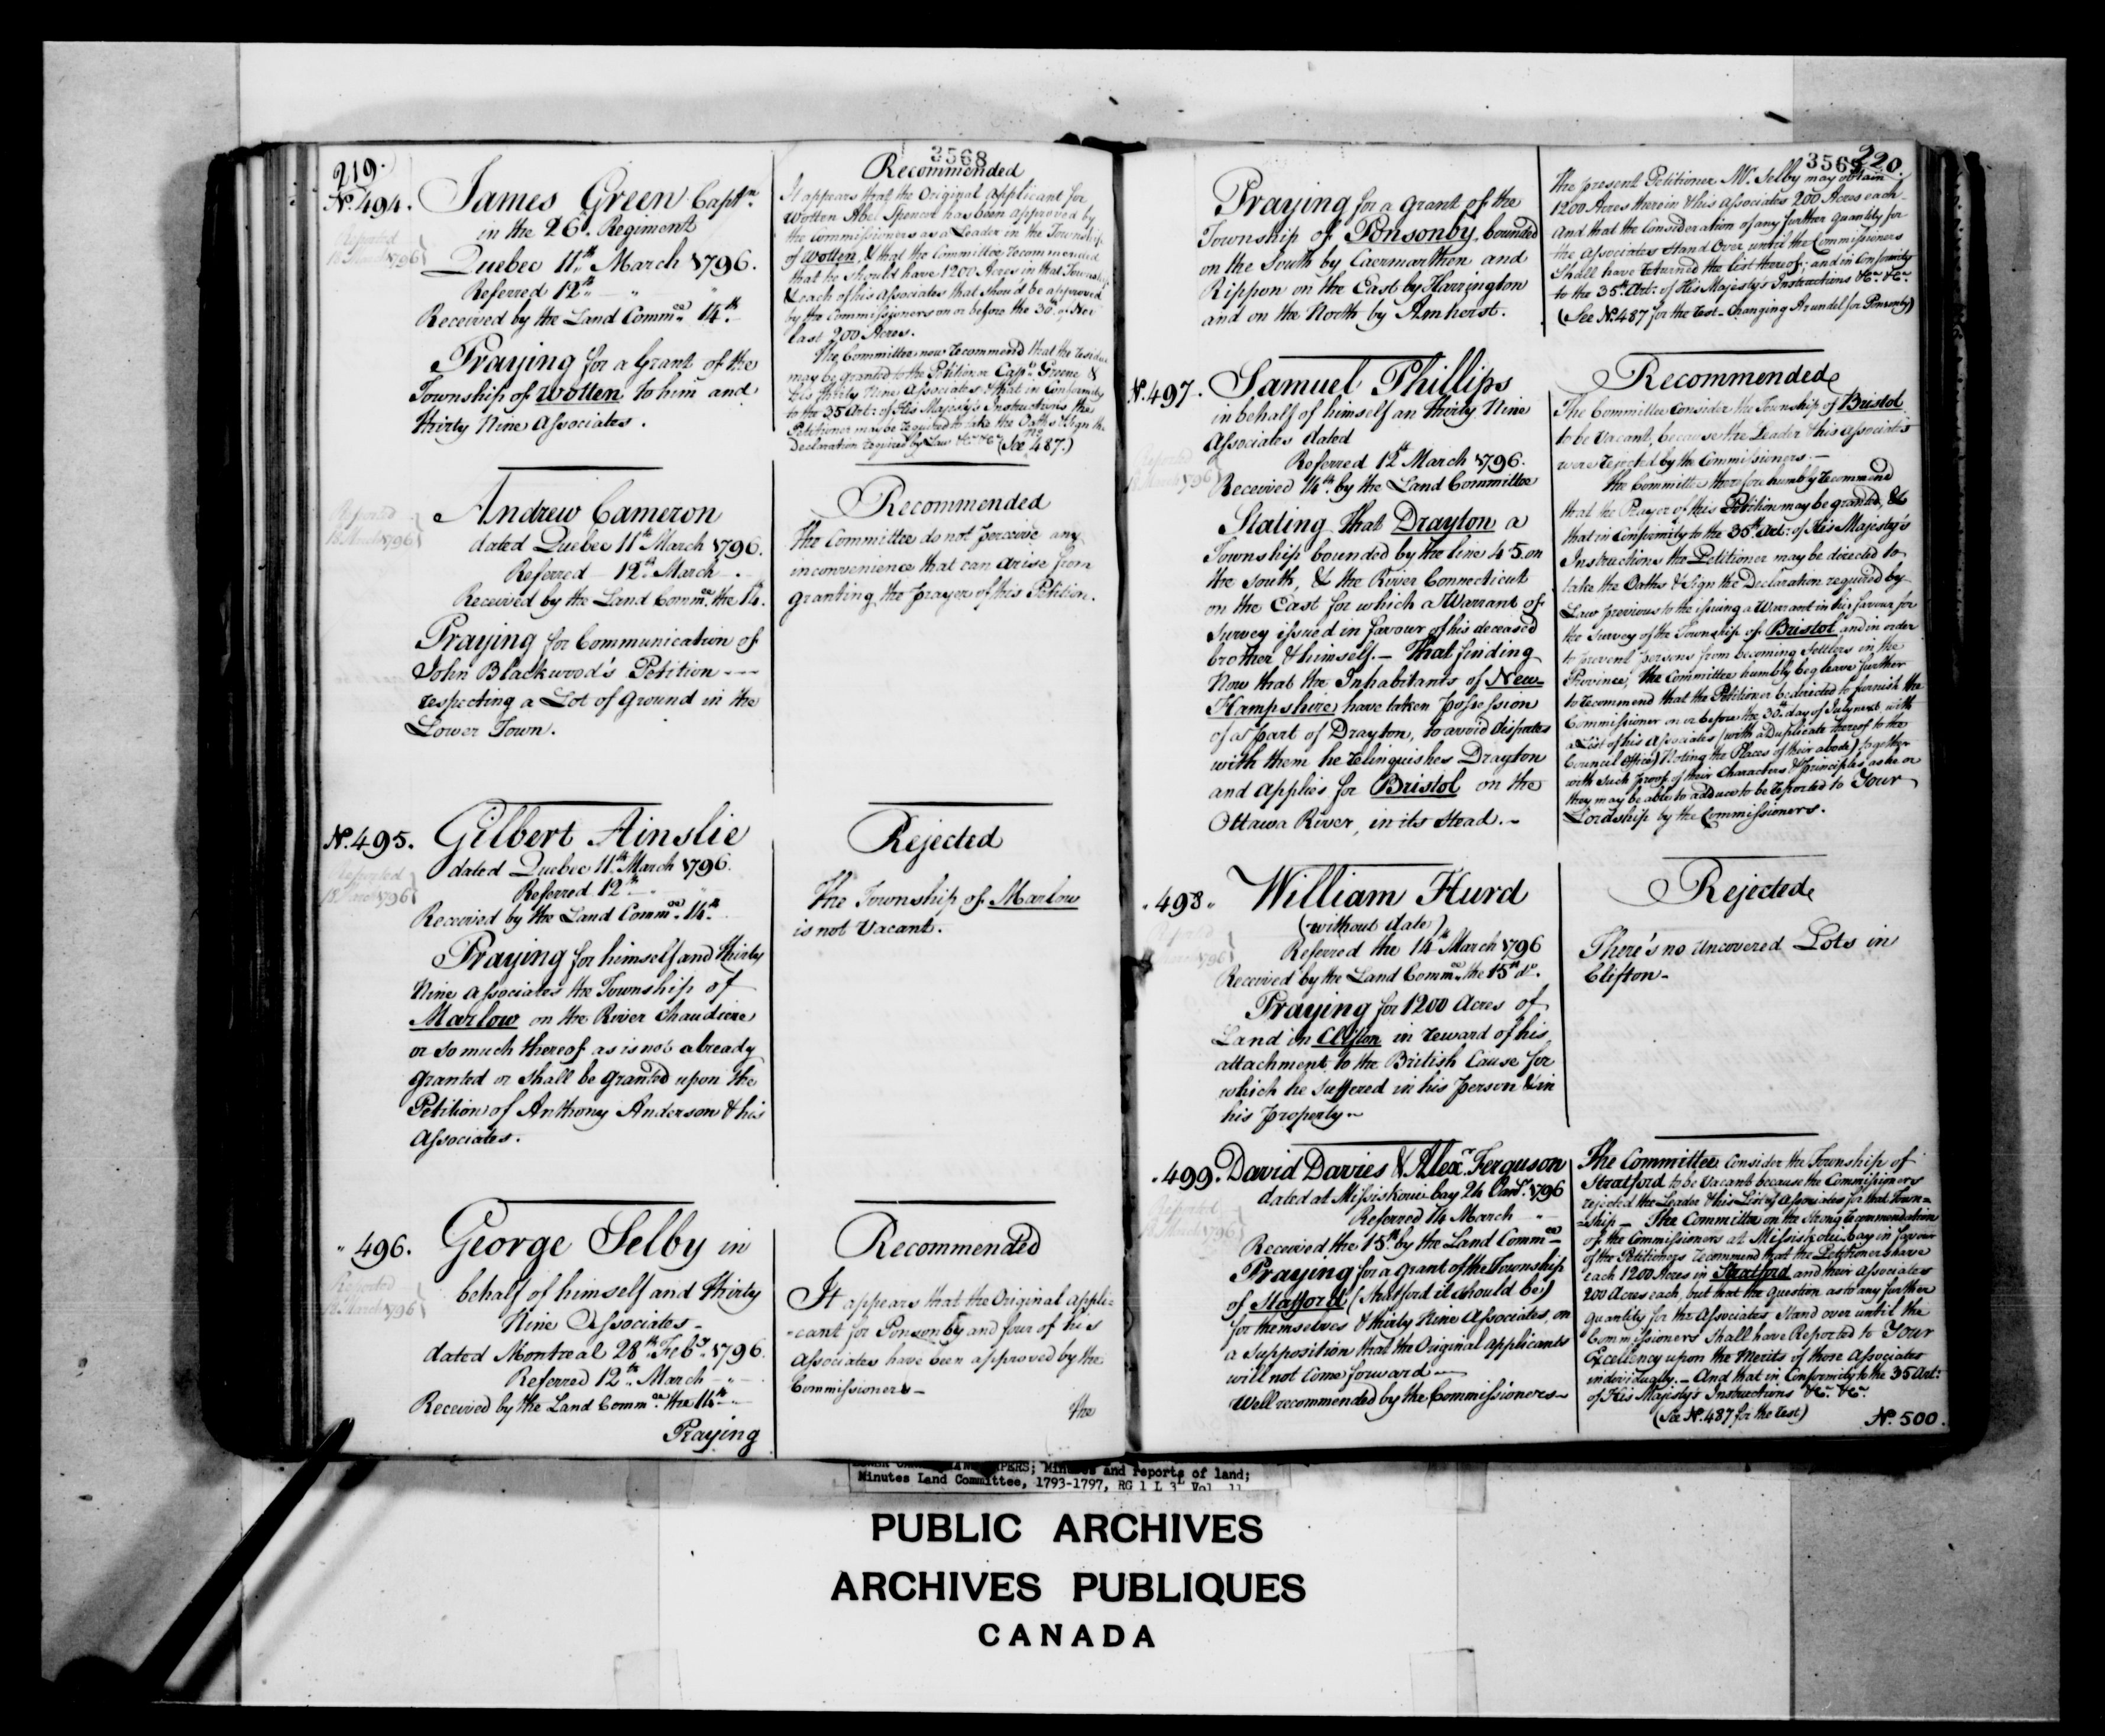 219.
3568
Nº. 494.
James Green Captn.
in the 26th. Regiment
Reported
18 March 1796
Quebec 11th. March 1796.
Referred 12th. " "
Received by the Land Commee. 14th.
Praying for a Grant of the
Township of Wotten to him and
thirty Nine Associates.
Recommended
It appears that the Original Applicant for
Wotten Abel Spencer has been approved by
the Commissioners as a Leader in the Township
of Wotten, & that the Committee recommended
that he should have 1200 Acres in that Township
& each of his Associates that should be approved
by the Commissioners on or before the 30th. of Nov
last 200 Acres.
The Committee now recommend that the residue
may be granted to the Petitioner Capn. Greene &
his thirty Nine Associates & that in Conformity
to the 35 Art: of His Majesty's Instructions the
Petitioner may be required to take the Oaths & Sign the
Declaration required by Law &c. &c. (See No. 487.)
Reported
18 March 1796
Andrew Cameron
dated Quebec 11th March 1796.
Referred - 12th. March - .
Received by the Land Commee. the 14.
Praying for Communication of
John Blackwood's Petition ---
respecting a Lot of Ground in the
Lower Town.
Recommended
The Committee do not perceive any
inconvenience that can arise from
granting the prayer of this Petition.
Nº. 495.
Gilbert Ainslie
Reported
18 March 1796
dated Quebec 11th. March 1796.
Referred 12th " "
Received by the Land Commee. 14th.
Praying for himself and thirty
Nine Associates the Township of
Marlow on the River Chaudiere
or so much thereof as is not already
granted or shall be granted upon the
Petition of Anthony Anderson & his
Associates.
Rejected
The Township of Marlow
is not Vacant.
" 496.
George Selby in
Reported
18 March 1796
behalf of himself and thirty
Nine Associates -
dated Montreal 28th. Feby. 1796.
Referred 12th. March - " -
Received by the Land Commee. the 14th "
Praying
Recommended
It appears that the Original Appli-
-cant for Ponsonby and four of his
Associates have been approved by the
Commissioners -
the
3569
220.
Praying for a grant of the
Township of Ponsonby, bounded
on the South by Caermarthen and
Rippon on the East by Harrington
and on the North by Amherst.
The present Petitioner Mr. Selby may obtain
1200 Acres therein & his Associates 200 Acres each -
And that the Consideration of any further quantity for
the Associates stand Over, until the Commissioners
shall have returned the list thereof; and in Conformity
to the 35th Art: of His Majesty's Instructions &c. &c.
(See Nº. 487 for the rest - Changing Arundel for Ponsonby)
Nº. 497.
Samuel Phillips
in behalf of himself an thirty Nine
Associates dated
Referred 12th March 1796.
Reported
18 March 1796
Received 14th. by the Land Committee
Stating that Drayton a
Township bounded by the line 45. on
the South, & the River Connecticut
on the East for which a Warrant of
Survey issued in favour of his deceased
brother & himself. - That finding
Now that the Inhabitants of New-
Hampshire have taken possession
of a part of Drayton, to avoid disputes
with them he relinquishes Drayton
and applies for Bristol on the
Ottawa River, in its stead. -
Recommended
The Committee Consider the Township of Bristol
to be Vacant, because the Leader & his Associates
were rejected by the Commissioners. -
The Committee therefore humbly recommend
that the Prayer of this Petition may be granted, &
that in Conformity to the 35th Art: of His Majesty's
Instructions the Petitioner may be directed to
take the Oaths & Sign the Declaration required by
Law previous to the issuing a Warrant in his favour for
the Survey of the Township of Bristol and in order
to prevent persons from becoming Settlers in the
Province, the Committee humbly beg leave further
to recommend that the Petitioner be directed to furnish the
Commissioner on or before the 30th day of July next, with
a List of his Associates (with a Duplicate thereof to the
Council Office) Noting the Places of their abode) together
with such proof of their Characters & principles as he or
they may be able to adduce to be reported to Your
Lordship by the Commissioners.
" 498 "
William Hurd
(without date)
Reported
March 1796
Referred the 14th March 1796
Received by the Land Commee. the 15th do.
Praying for 1200 Acres of
Land in Clifton in reward of his
attachment to the British Cause for
which he suffered in his person & in
his property -
Rejected
There's no uncovered Lots in
Clifton -
" 499.
David Davies & Alexr. Ferguson
dated at Missiskoui bay 24 Jany. 1796
Reported
18 March 1796
Referred 14 March - " -
Received the 15th. by the Land Commee
Praying for a grant of the Township
of Stafford (Stratford it should be)
for themselves & thirty Nine Associates, on
a supposition that the Original Applicants
will not come forward -
Well recommended by the Commissioners -
The Committee Consider the Township of
Stratford to be Vacant because the Commissioners
rejected the Leader & his List of Associates for that Town=
=ship - The Committee on the strong recommendation
of the Commissioners at Missiskoui bay in favour
of the Petitioners recommend that the Petitioners have
each 1200 Acres in Stratford and their Associates
200 Acres each, but that the question as to any further
quantity for the Associates stand over until the
Commissioners shall have Reported to Your
Excellency upon the Merits of those Associates
individually. - And that in Conformity to the 35 Art:
of His Majesty's Instructions &c. &c.
(See Nº. 487 for the rest)
Nº. 500.
PAPERS; Minutes and reports of land;
Minutes Land Committee, 1793-1797, RG 1 L 3L Vol. 11
PUBLIC ARCHIVES
ARCHIVES PUBLIQUES
CANADA